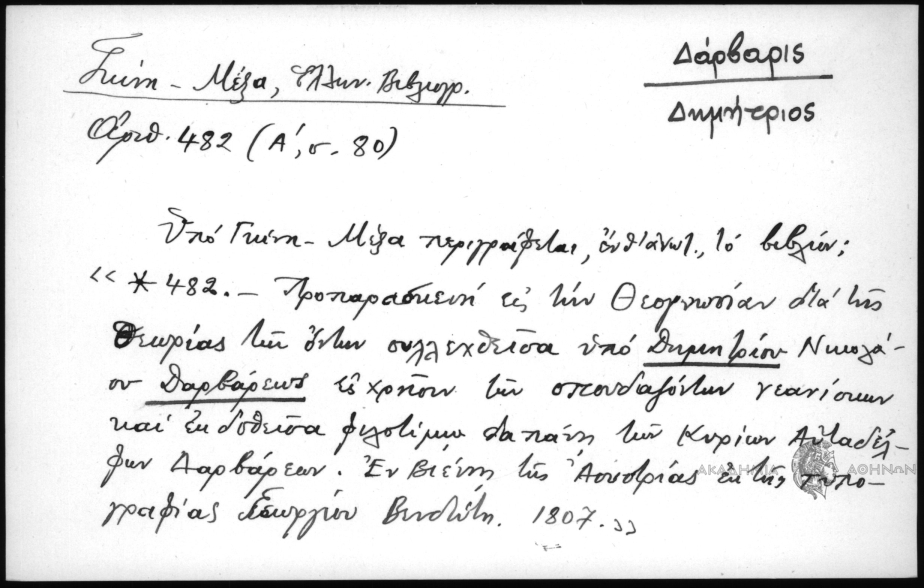 Δάρβαρις
Δημήτριος
Γκίνη - Μέξα, Ἑλλην. Βιβλιογρ.
Ἀριθ. 482 (Α΄, σ. 80)
Ὑπό Γκίνη - Μέξα περιγράφεται, ἔνθ' ἀνωτ., τό βιβλίον;
«* 482. - Προπαρασκευή εἰς τήν Θεογνωσίαν διά τῆς
Θεωρίας τῶν ὄντων συλλεχθεῖσα ὑπό Δημητρίου Νικολά-
ου Δαρβάρεως εἰς χρῆσιν τῶν σπουδαζόντων νεανίσκων
καί ἐκδοθεῖσα φιλοτίμῳ δαπάνῃ τῶν Κυρίων Αὐταδέλ-
φων Δαρβάρεων. Ἐν Βιέννῃ τῆς Ἀουστρίας ἐκ τῆς τυπο-
γραφίας Γεωργίου Βενδότη. 1807.»
ΑΚΑΔΗΜΙΑ ΑΘΗΝΩΝ